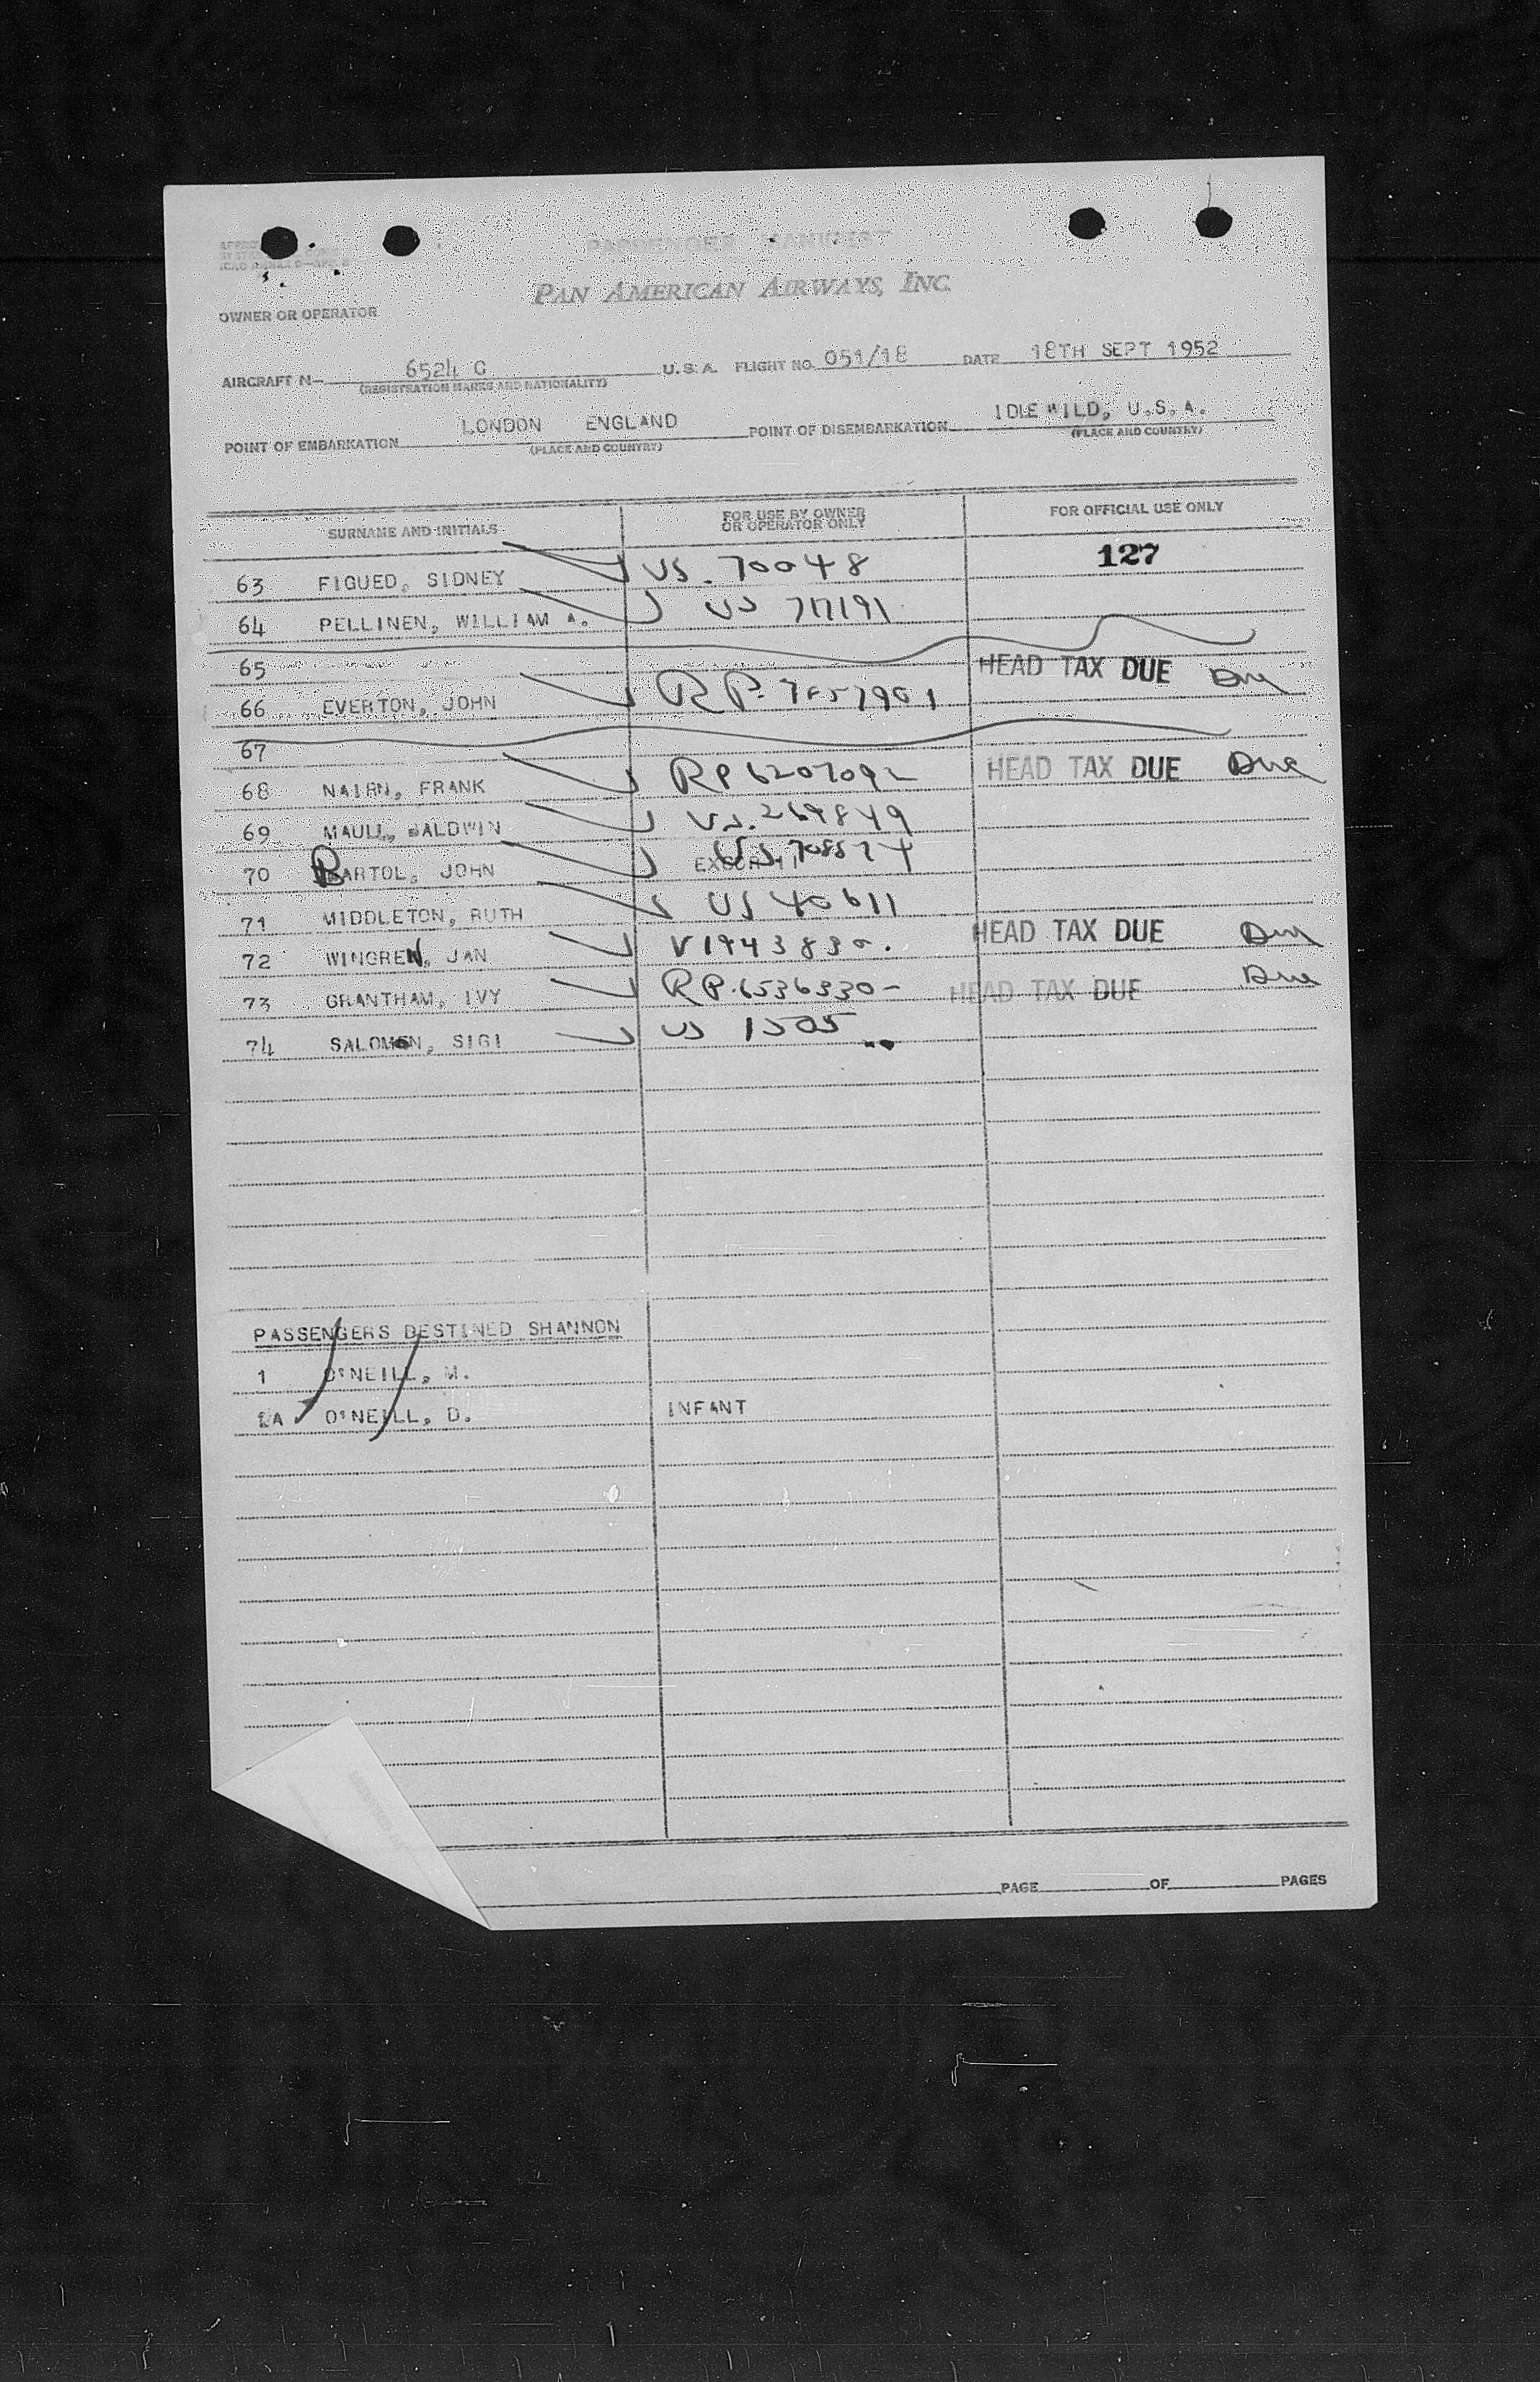 PASSENGER MANIFEST
PAN AMERICAN AIRWAYS, INC.
OWNER OR OPERATOR
AIRCRAFT N- 6524 C U.S.A. FLIGHT NO. 051/18 DATE 18TH SEPT 1952
(REGISTRATION MARKS AND NATIONALITY)
POINT OF EMBARKATION LONDON ENGLAND POINT OF DISEMBARKATION IDLEWILD, U.S.A.
(PLACE AND COUNTRY) (PLACE AND COUNTRY)
SURNAME AND INITIALS FOR USE BY OWNER OR OPERATOR ONLY FOR OFFICIAL USE ONLY
127
63 FIGUED, SIDNEY US. 70048
64 PELLINEN, WILLIAM A. US 717191
65 HEAD TAX DUE Due
66 EVERTON, JOHN RP.
67
68 NAIRN, FRANK RP 6207092 HEAD TAX DUE Due
69 MAULL, BALDWIN US. 269849
70 BARTOL, JOHN US 708574
71 MIDDLETON, RUTH US 40611
72 WINGREN, JAN V1943830. HEAD TAX DUE Due
73 GRANTHAM, IVY RP.6536330- HEAD TAX DUE Due
74 SALOMON, SIGI US 1505
PASSENGERS DESTINED SHANNON
1 O'NEILL, M.
1A O'NEILL, D. INFANT
PAGE OF PAGES